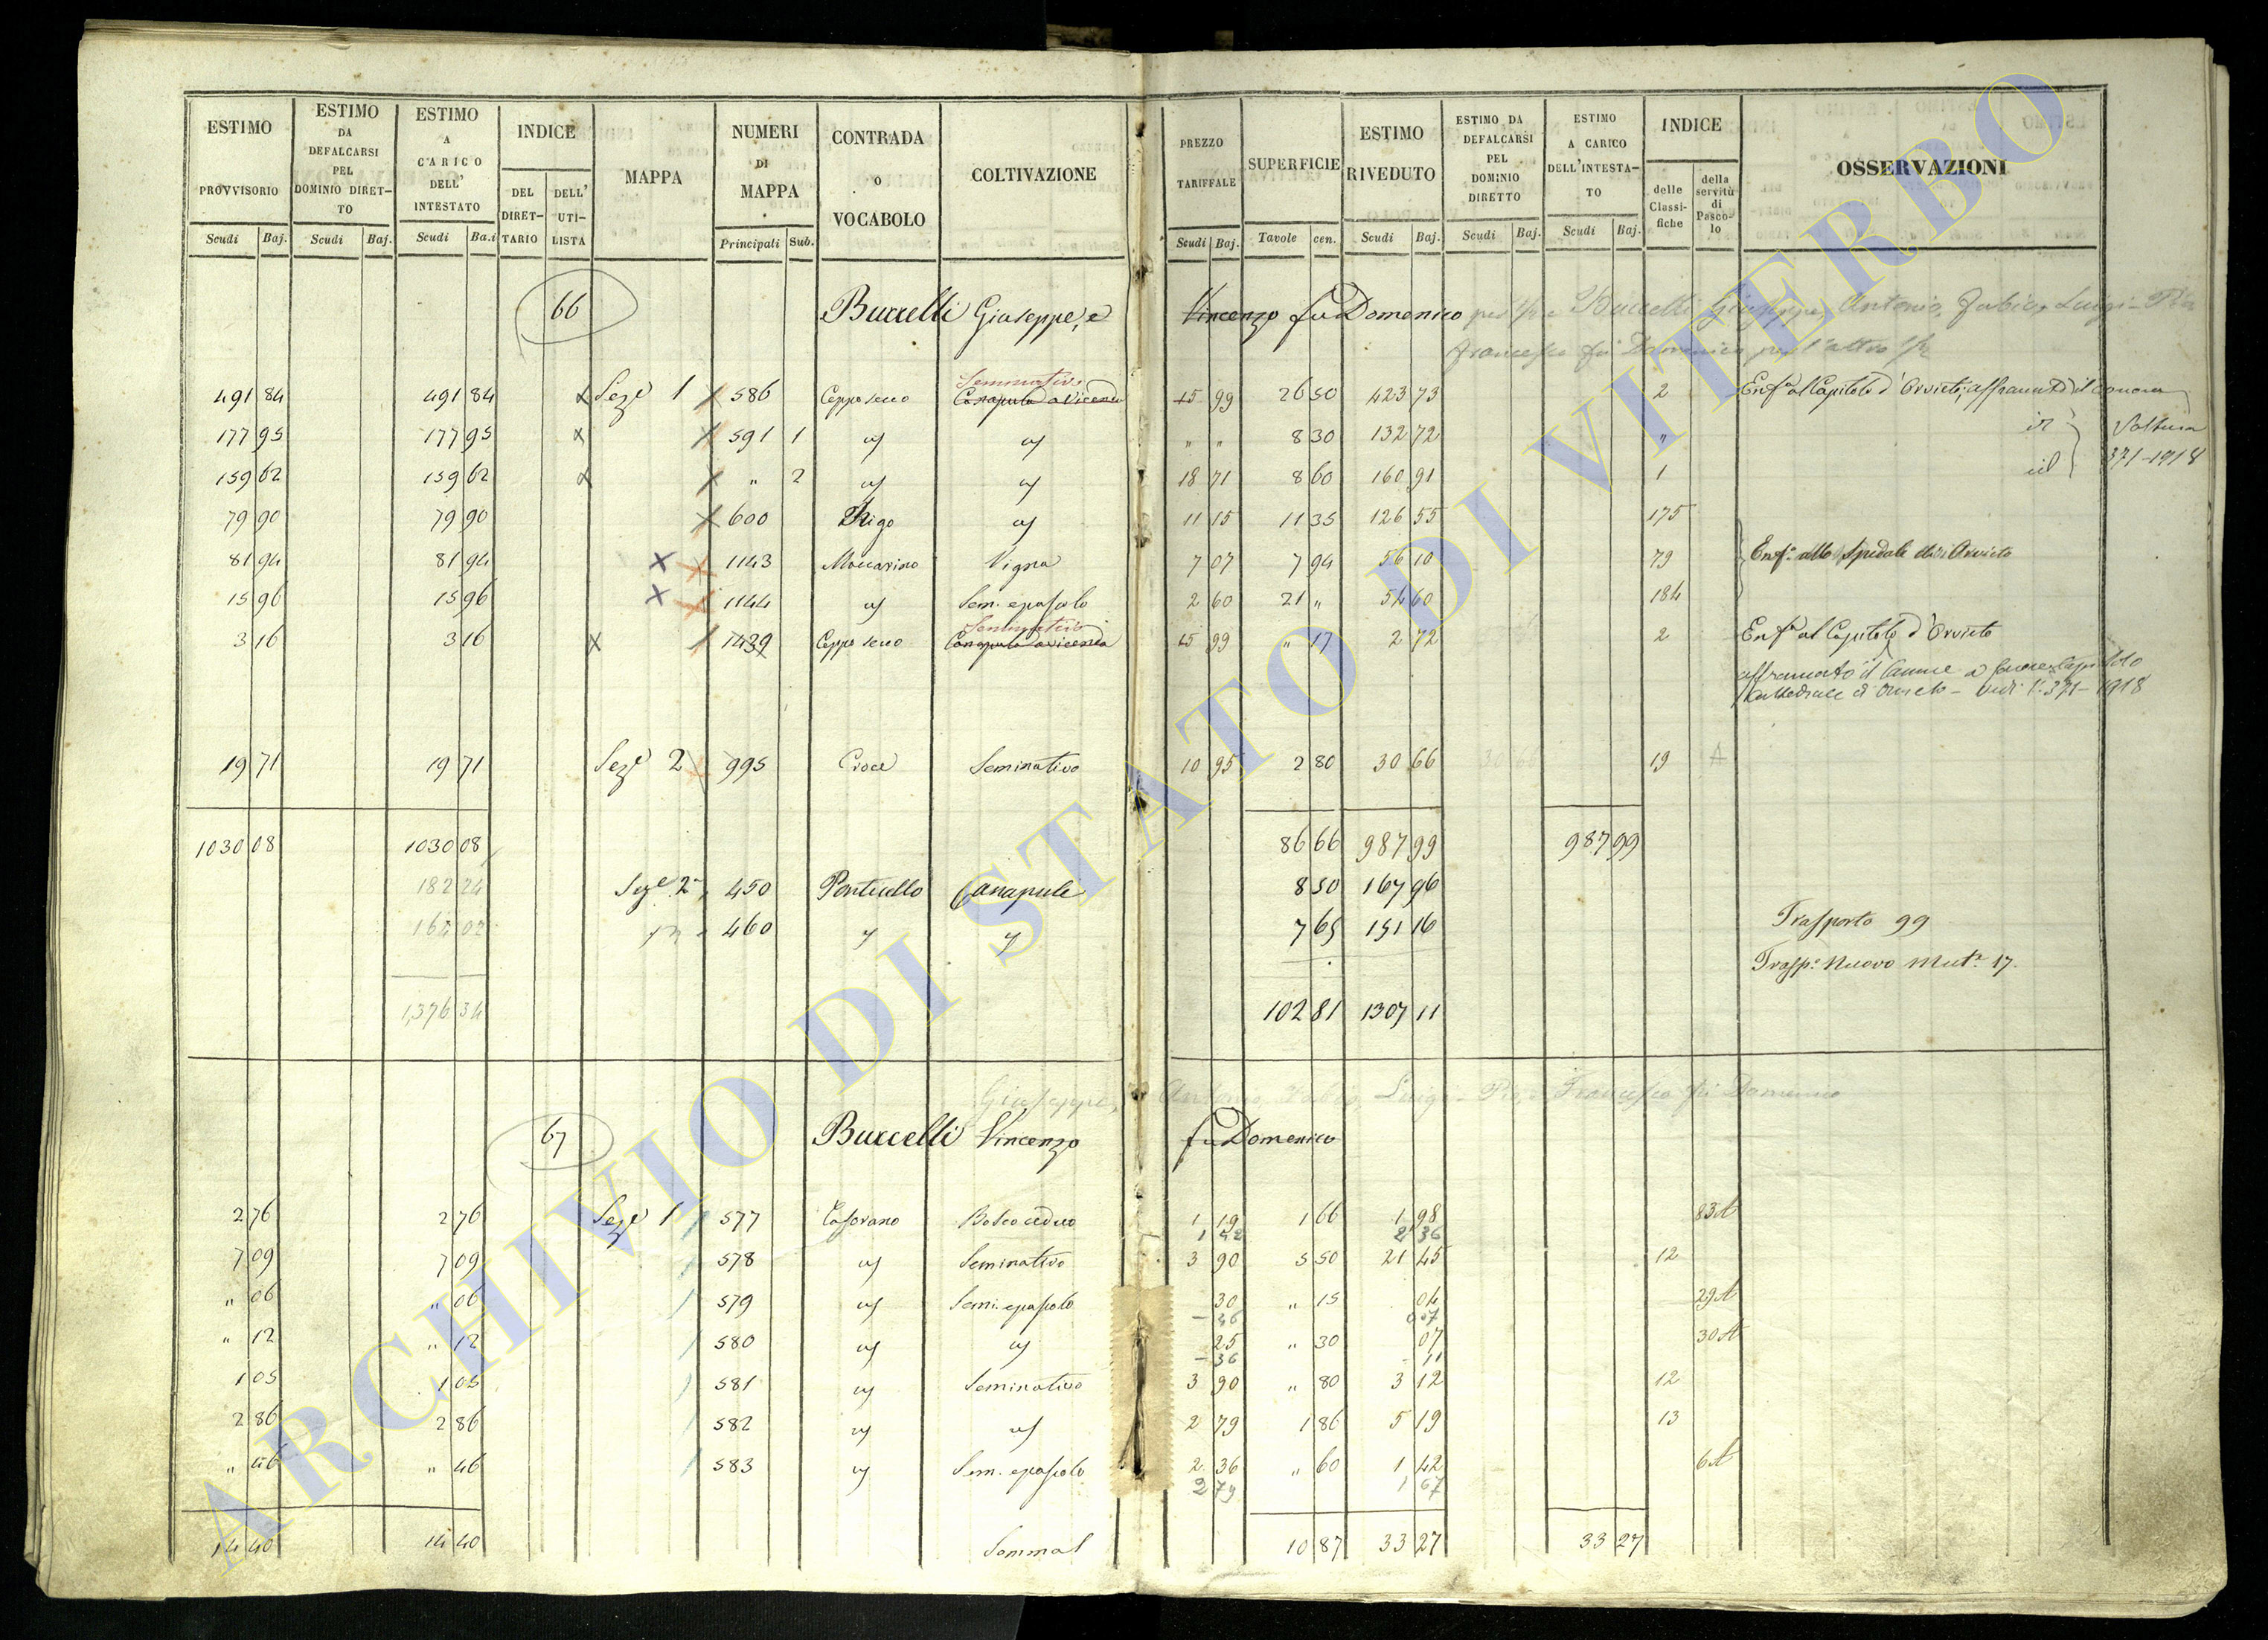 ESTIMO PROVVISORIO Scudi Baj. ESTIMO DA DEFALCARSI PEL DOMINIO DIRETTO Scudi Baj. ESTIMO A CARICO DELL' INTESTATO Scudi Ba.i INDICE DEL DIRETTARIO DELL' UTILISTA MAPPA NUMERI DI MAPPA Principali Sub. CONTRADA O VOCABOLO COLTIVAZIONE PREZZO TARIFFALE Scudi Baj. SUPERFICIE Tavole cen. ESTIMO RIVEDUTO Scudi Baj. ESTIMO DA DEFALCARSI PEL DOMINIO DIRETTO Scudi Baj. ESTIMO A CARICO DELL'INTESTATO Scudi Baj. INDICE delle Classifiche della servitù di Pascolo OSSERVAZIONI
66 Burcelli Giuseppe, e Vincenzo fu Domenico Burcelli Giuseppe, Antonio, Fabio, Luigi
Francesco fu Domenico per l'altro
Seminativo
491 84 491 84 Seze 1 586 Ceppo secco Canapula a vicenda 15 99 26 50 423 73 2 Enfa al Capitolo d'Orvieto, affrancato il canone
177 95 177 95 591 1 " " 8 30 132 72 " Voltura
159 62 159 62 " 2 18 71 8 60 160 91 1 id 371-1918
79 90 79 90 600 Rigo 11 15 11 35 126 55 175
81 94 81 94 1143 Maccarino Vigna 7 07 7 94 56 10 79 Enfa allo Spedale di Orvieto
15 96 15 96 1144 Sem. e pascolo 2 60 21 " 54 60 184
Seminativo
3 16 3 16 1439 Ceppo secco Canapula a vicenda 15 99 " 17 2 72 2 Enfa al Capitolo d'Orvieto
affrancato il canone a favore Capitolo
Cattedrale d'Orvieto - Vedi 371-1918
19 71 19 71 Seze 2 995 Croce Seminativo 10 95 2 80 30 66 30 66 19 A
1030 08 1030 08 86 66 987 99 987 99
182 24 Seze 2a 450 Ponticello Canapule 8 50 167 96
164 02 460 7 65 151 16 Trasporto 99
Traspo Nuovo Mutr 17.
1376 34 102 81 1307 11
Giuseppe, Antonio, Fabio, Luigi Francesco fu Domenico
67 Burcelli Vincenzo fu Domenico
2 76 2 76 Seze 1 577 Casorano Bosco ceduo 1 19 1 66 1 98 83 A
1 42 2 36
7 09 7 09 578 Seminativo 3 90 5 50 21 45 12
" 06 " 06 579 Sem. e pascolo 30 " 15 04 29 A
- 36 0 07
" 12 " 12 580 25 " 30 07 30 A
- 36 - 11
1 05 1 05 581 Seminativo 3 90 " 80 3 12 12
2 86 2 86 582 2 79 1 86 5 19 13
" 46 " 46 583 Sem. e pascolo 2 36 " 60 1 42 6 A
2 79 1 67
14 40 14 40 Somma 10 87 33 27 33 27
ARCHIVIO DI STATO DI VITERBO